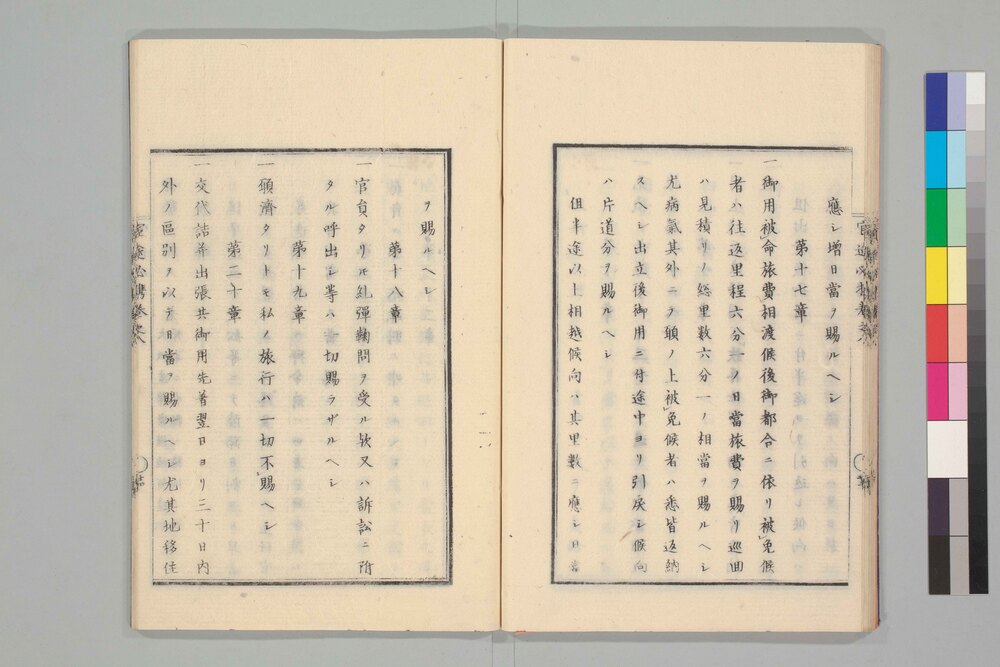 應シ増日當ヲ賜ルヘシ
第十七章
一御用被命旅費相渡候後御都合ニ依リ被免候
者ハ往返里程六分一ノ日當旅費ヲ賜リ巡回
ハ見積リノ総里数六分一ノ相當ヲ賜ルヘシ
尤病氣其外ニヲ願ノ上被免候者ハ悉皆返納
スヘシ出立後御用ニ付途中ヨリ引戻シ候向
ハ片道分ヲ賜ルヘシ
但半途以上相越候向ハ其里數ニ應シ日當
ヲ賜ルヘシ
第十八章
一官員タリ圧糺彈鞠問ヲ受ル欤又ハ訴訟ニ附
タル呼出シ等ハ一切賜ラザルヘシ
第十九章
一願濟タリトモ私ノ旅行ハ一切不賜ヘシ
第二十章
一交代詰并出張共御用先着翌日ヨリ三十日内
外ノ區別ヲ以テ日當ヲ賜ルヘシ尤其地移住